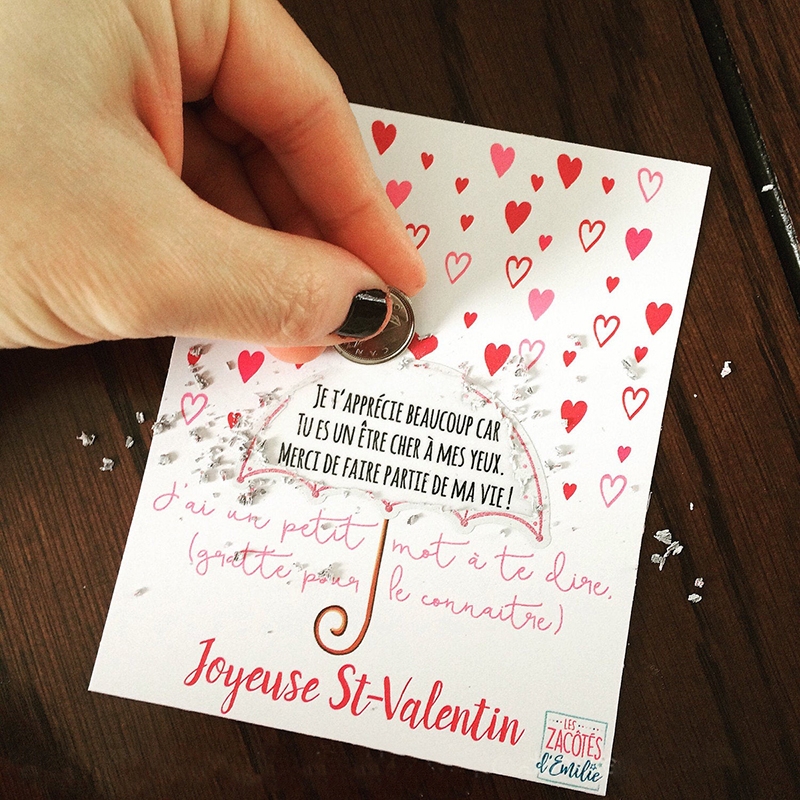 JE T'APPRÉCIE BEAUCOUP CAR
TU ES UN ÊTRE CHER À MES YEUX.
MERCI DE FAIRE PARTIE DE MA VIE !
J'ai un petit mot à te dire,
(gratte pour le connaitre)
Joyeuse St-Valentin
LES
ZACÔTÉS
d'Emilie